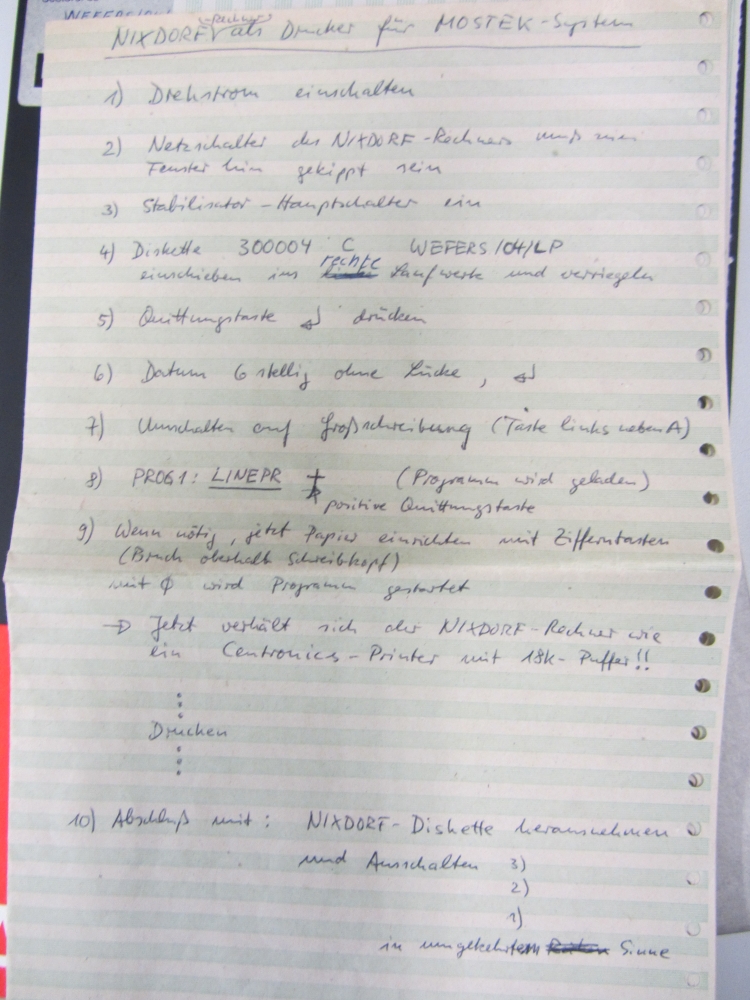 WEFERS/04/
-Rechner
NIXDORF als Drucker für MOSTEK-System
1) Drehstrom einschalten
2) Netzschalter des NIXDORF-Rechners muß zum
Fenster hin gekippt sein
3) Stabilisator-Hauptschalter ein
4) Diskette 300004 C WEFERS/04/LP
rechte
einschieben ins Laufwerk und verriegeln
5) Quittungstaste drücken
6) Datum 6 stellig ohne Lücke,
7) Umschalten auf Großschreibung (Taste links neben A)
8) PROG1: LINEPR + (Programm wird geladen)
positive Quittungstaste
9) Wenn nötig, jetzt Papier einrichten mit Zifferntasten
(Bruch oberhalb Schreibkopf)
mit Ø wird Programm gestartet
→ Jetzt verhält sich der NIXDORF-Rechner wie
ein Centronics-Printer mit 18K-Puffer!!
Drucken
10) Abschluß mit: NIXDORF-Diskette herausnehmen
und Ausschalten 3)
2)
1)
in umgekehrtem Sinne